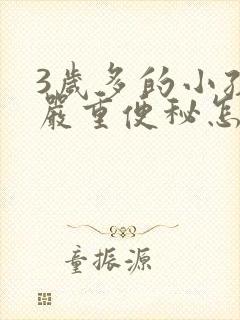 3歲多的小孩
嚴重便秘怎
童振源